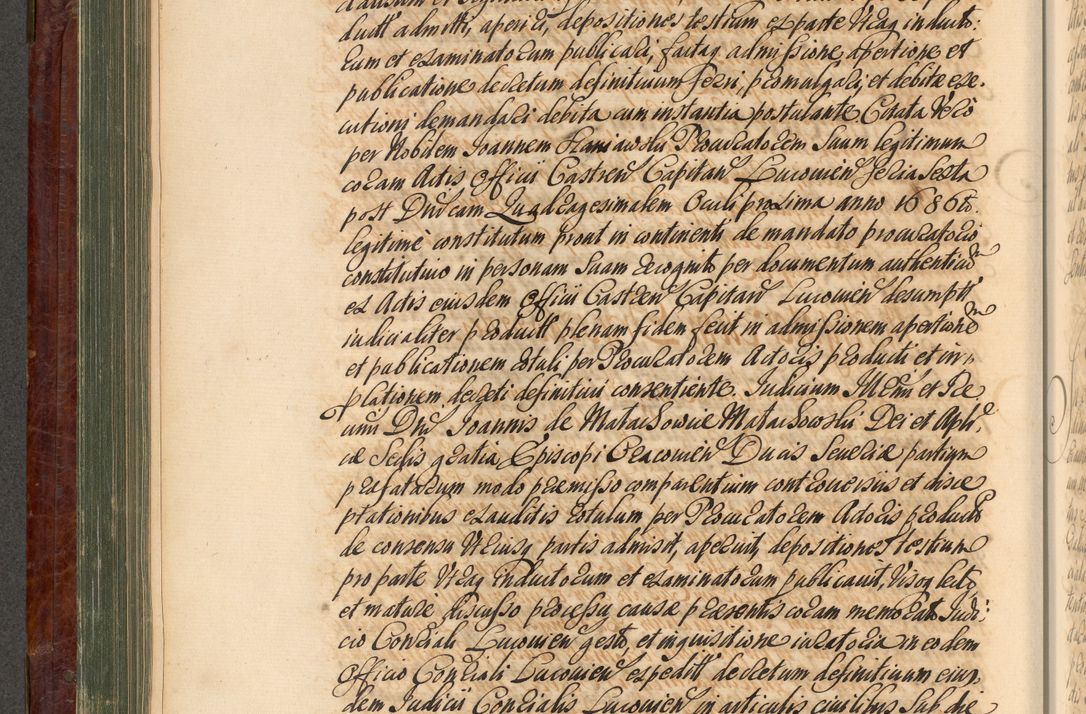 duitt admitti, aperiri, depositiones testium ex parte utraq inducto:
rum et examinatorum publicari, factaq admissione, apertione, et
publicatione decretum definitivum ferri, promulgari, et debitæ exe=
cutioni demandari debita cum instantia postulante Citata vero
per Nobilem Joannem Procuratorem Suum legitimum
coram Actis Officii Castren Capitan Lucovien feria Sexta
post Dnicam Quadragesimalem Oculi proxima anno 1686to
legitime constitutum prout in continenti de mandato procuratorio
constitutivo in personam Suam recognito per documentum authenticum
ex Actis eiusdem Officii Castren Capitan Lucovien desumptt
iudicialiter produitt, plenam fidem fecit in admissionem apertionem
et publicationem rotuli per Procuratorem Actoris producti et in
plationem decreti definitivi consentiente. Judicium Illmi et Re
umi Dni Joannis de Małachowice Małachowski Dei et Aplic
æ Sedis gratia Episcopi Cracovien Ducis Severiæ partium
præfatarum modo præmisso comparentium controversiis et disce
ptationibus exauditis rotulum per Procuratorem Actoris producto
de consensu utriusq partis admisit, aperuit, depositiones testium
pro parte utraq inductorum et examinatorum publicavit, visoq lecto
et mature discusso processu causæ præsentis coram memorato Judi:
cio Consiali Lucovien gesto, et inquisitione iuratoria in eodem
Officio Consiali Lucovien expeditt decretum definitivum eius
dem Judicii Consialis Lucovien in articulis civilibus Sub die